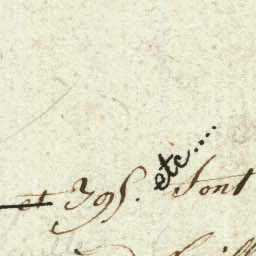 et 395. etc.... sont